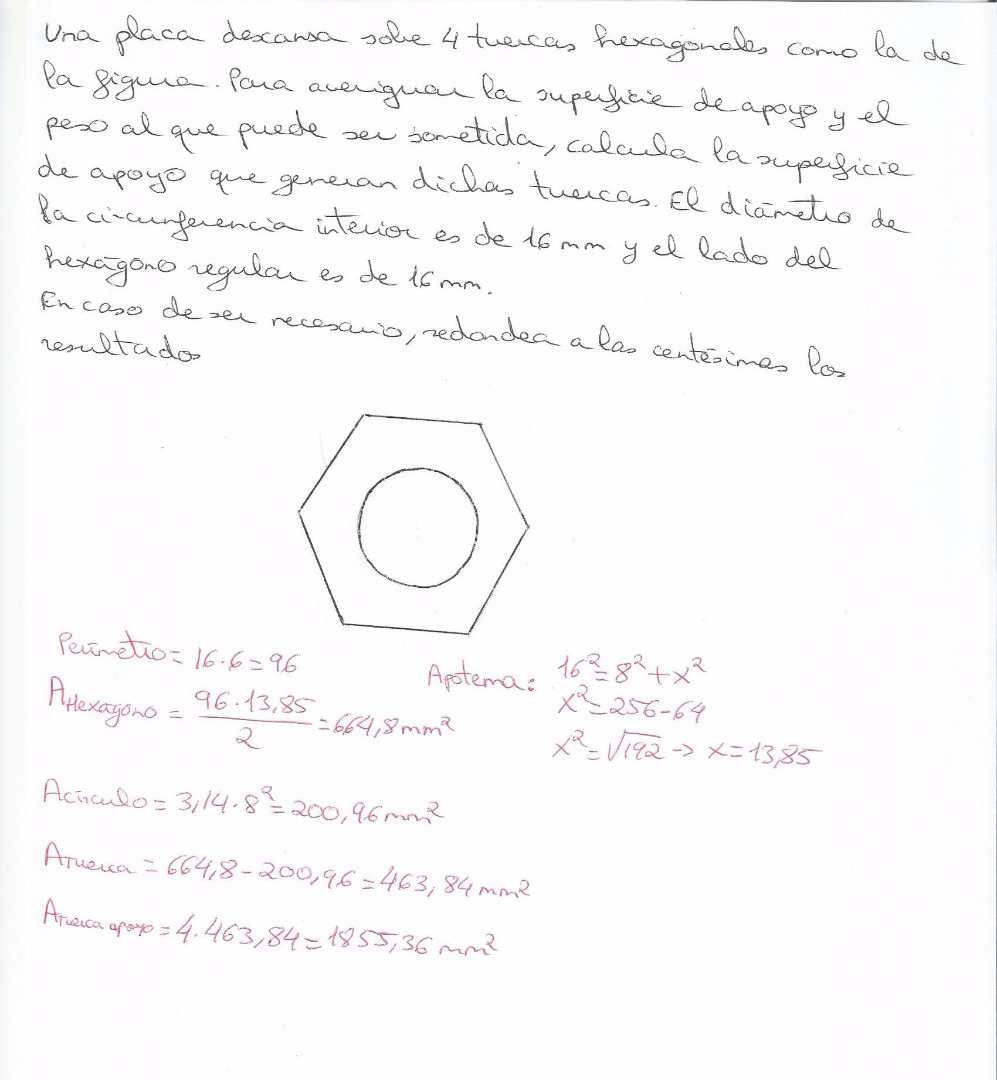 Una placa descansa sobre 4 tuercas hexagonales como la de
la figura. Para averiguar la superficie de apoyo y el
peso al que puede ser sometida, calcula la superficie
de apoyo que generan dichas tuercas. El diámetro de
la circunferencia interior es de 16 mm y el lado del
hexágono regular es de 16 mm.
En caso de ser necesario, redondea a las centésimas los
resultados
Perímetro = 16·6 = 96
A Hexágono = 96·13,85 / 2 = 664,8 mm²
Apotema: 16² = 8² + x²
x² = 256 - 64
x² = √192 -> x = 13,85
A círculo = 3,14·8² = 200,96 mm²
A Tuerca = 664,8 - 200,96 = 463,84 mm²
A Tuerca apoyo = 4·463,84 = 1855,36 mm²